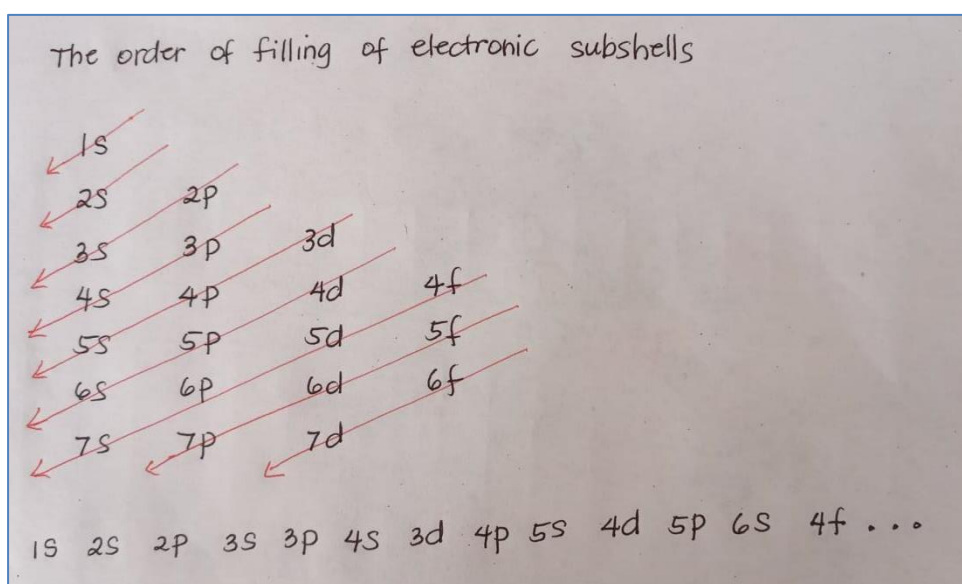 The order of filling of electronic subshells
1s
2s 2p
3s 3p 3d
4s 4p 4d 4f
5s 5p 5d 5f
6s 6p 6d 6f
7s 7p 7d
1s 2s 2p 3s 3p 4s 3d 4p 5s 4d 5p 6s 4f ...